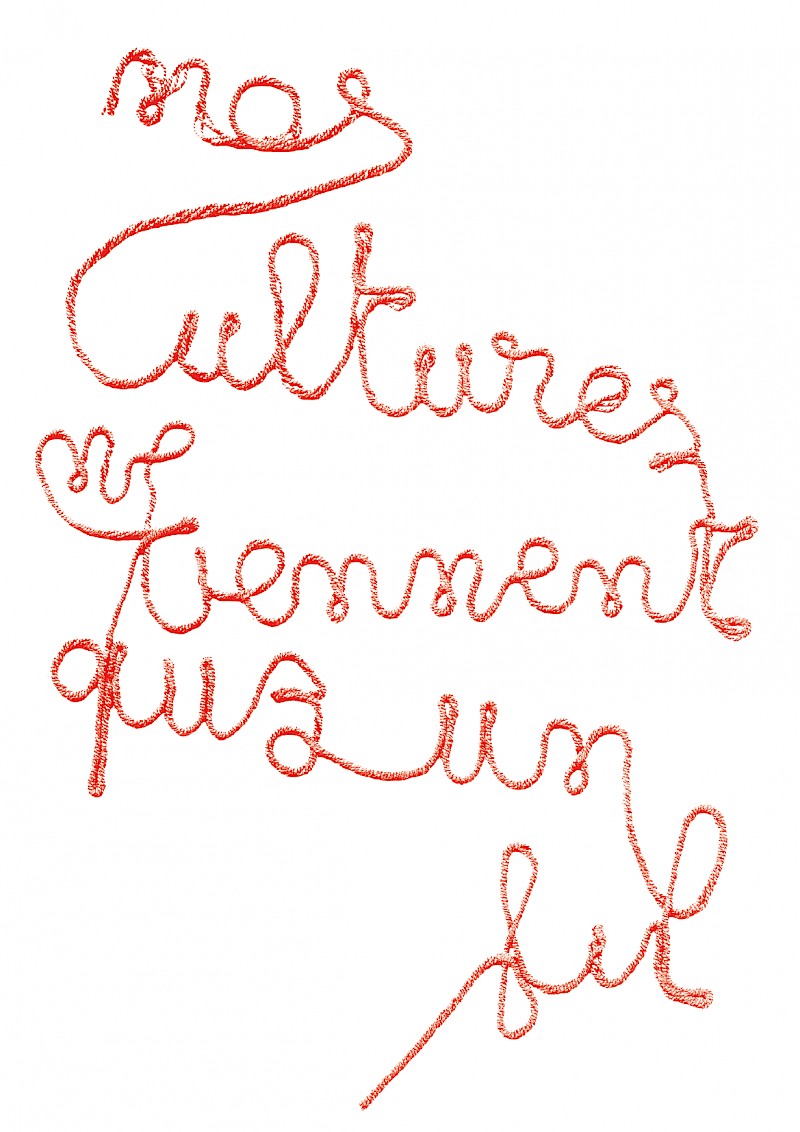 nos
cultures
ne
tiennent
qua un
fil